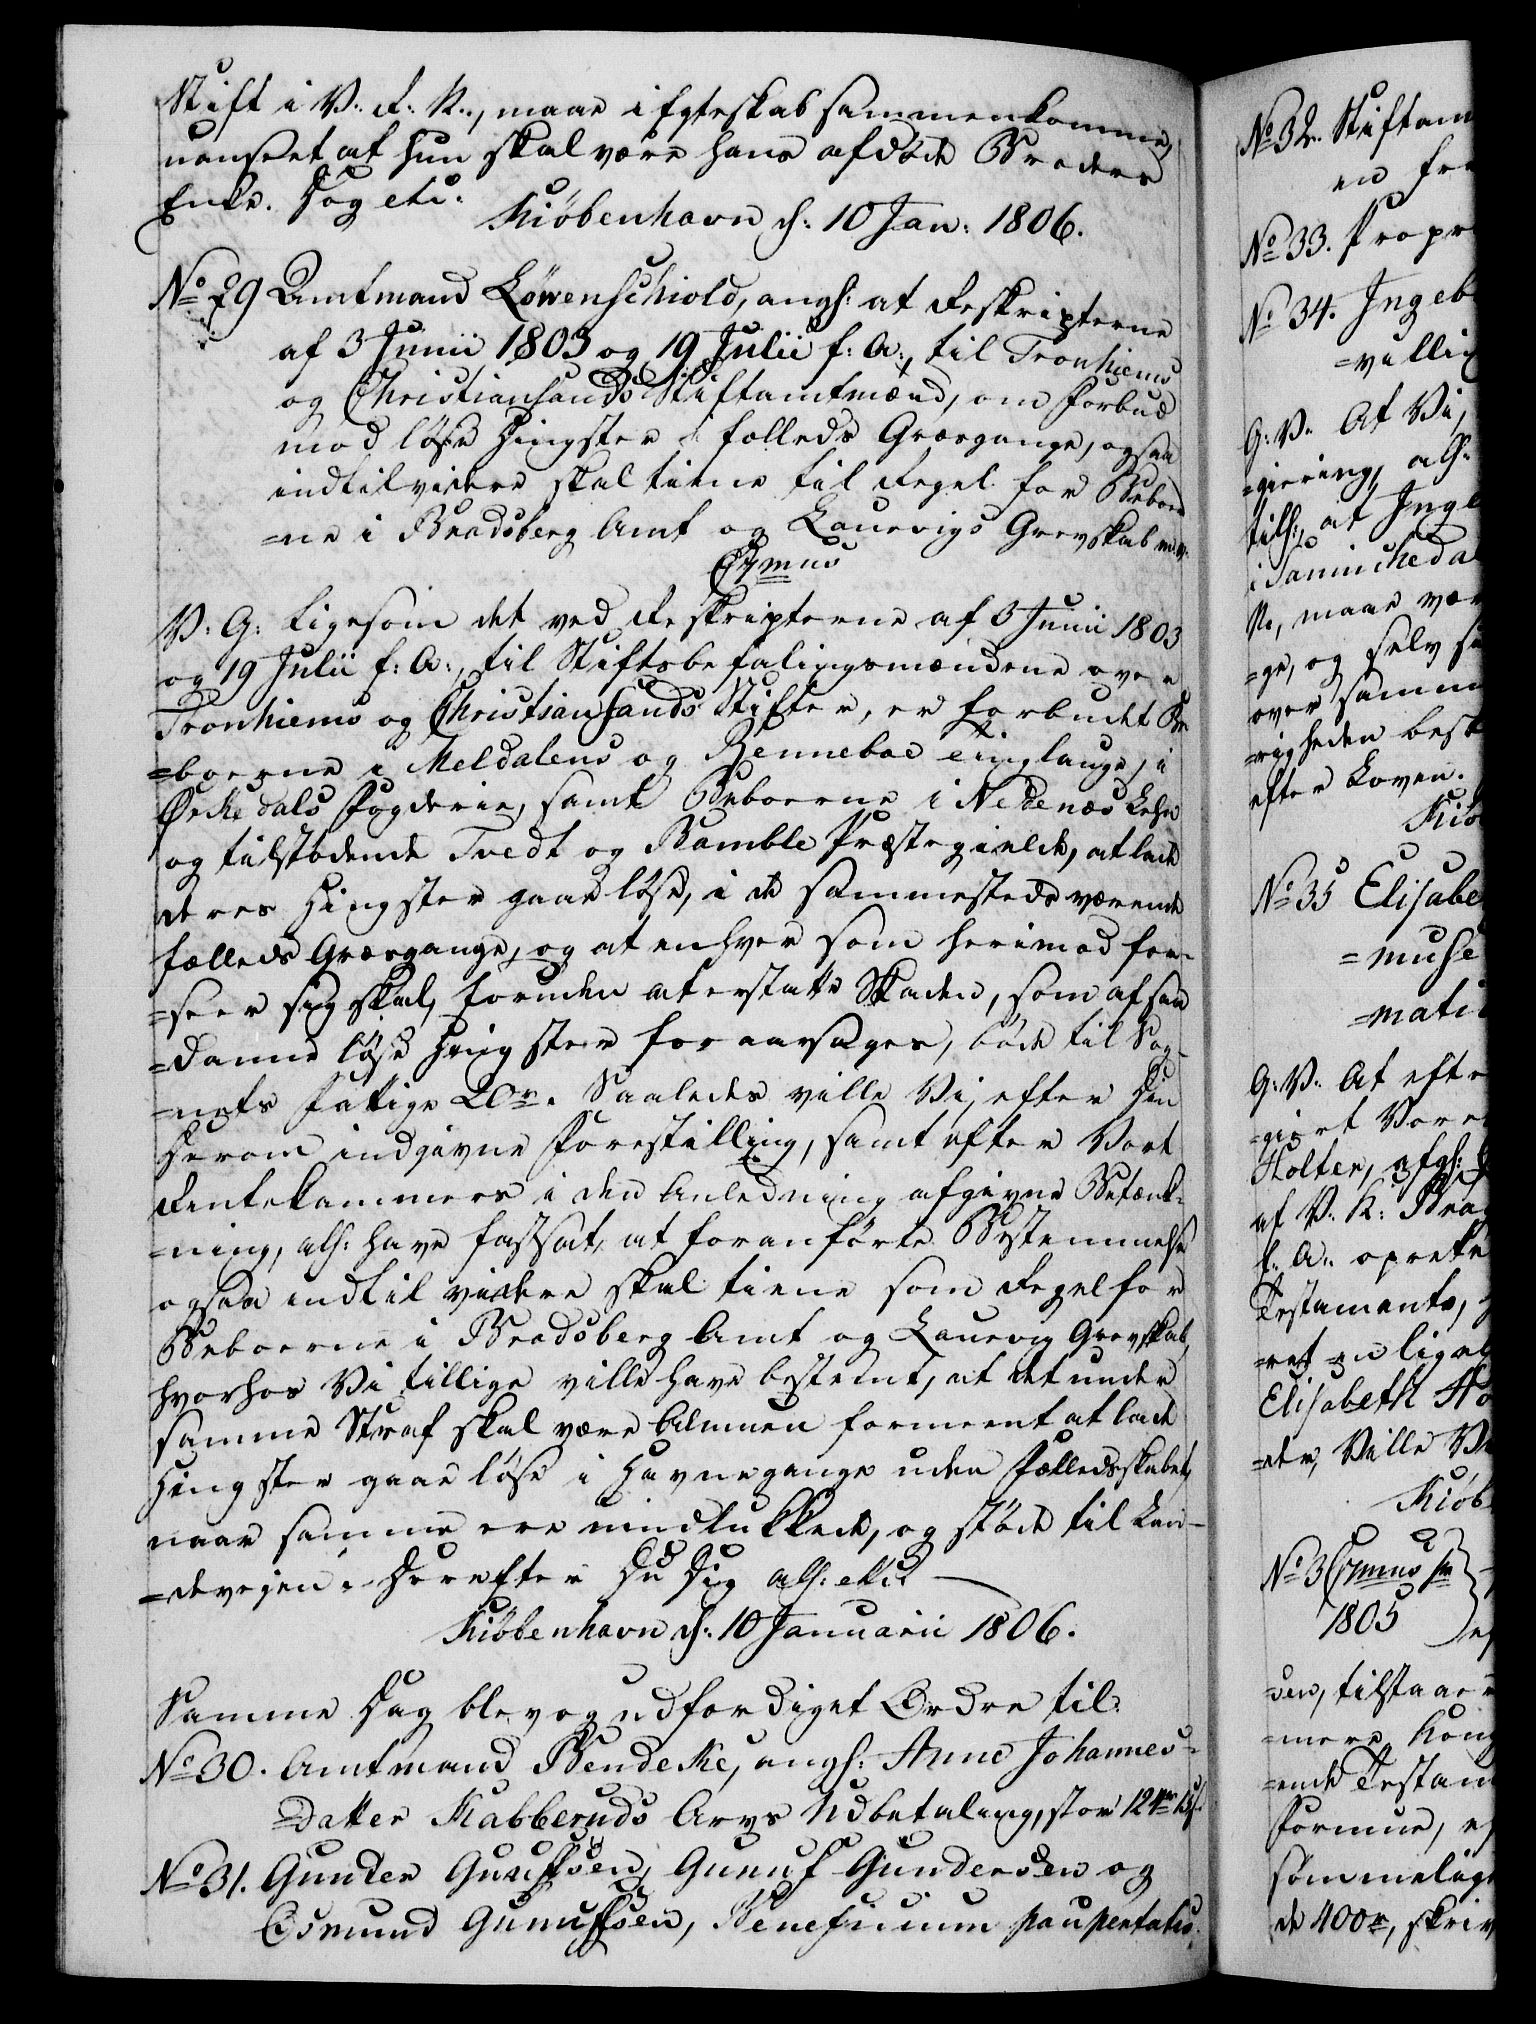 Stift i V: R: N:, maae i Egteskab sammenkomme,
uanseet at hun skal være hans afdøde Broders
Enke. Dog etc:
Kiöbenhavn d: 10 Jan: 1806.
No 29 Amtmand Löwenschiold, angl: at Reskripterne
af 3 Junii 1803 og 19 Julii f: A:, til Tronhiems
og Christiansands Stiftamtmænd, om Forbud
mod løse Hingster i fælleds Græsgange, ogsaa
indtil videre skal tiene til Regel for Beboer
=ne i Bradsberg Amt og Laurvigs Grevskab m. v.
V: G: Ligesom det ved Reskripterne af 3 Junii 1803
og 19 Julii f: A:, til Stiftsbefalingsmændene over
Tronhiems og Christiansands Stifter, er forbudet Be
=boerne i Meldalens og Renneboe Tinglauge, i
Ørkedals Fogderie, samt Beboerne i Nedenæs Lehn
og tilstødende Tvedt og Bamble Præstegielde, at lade
deres Hingster gaae løse, i de sammesteds værende
fælleds Græsgange, og at enhver som herimod for-
=seer sig skal, foruden at erstatte Skaden, som af saa
=danne løse Hingster foraarsages, bøde til Sog-
=nets Fattige 20r. Saaledes ville Vi, efter Din
herom indgivne Forestilling, samt efter Vort
Rentekammers i den Anledning afgivne Betænk-
=ning, alh: have fastsat, at foranførte Bestemmelse
ogsaa indtil videre skal tiene som Regel for
Beboerne i Bradsberg Amt og Laurvig Grevskab,
hvorhos Vi tillige ville have bestemt, at det under
samme Straf skal være Almuen formeent at lade
Hingster gaae løse i Havnegange uden Fælledsskabet,
naar samme ere uindlukkede, og støde til Lan-
=deveien. Derefter Du Dig alh: etc.
Kiöbenhavn d: 10 Januarii 1806.
Samme Dag blev og udfærdiget Ordre til:
No 30. Amtmand Bendeke, angl: Anne Johannes-
=datter Kabberuds Arvs Udbetaling, stor 124r 15s.
No 31. Gunder Gunufsen, Gunuf Gundersen og
Osmund Gunufsen, Beneficium paupertatis.
No 32. Stiftam
en fra
No 33. Propr
No 34. Ingeb
=villig
G: V: At Vi,
=giering, alh:
tilh:, at Inge
N., maae vær
=ge, og selv
over samm
=righeden best
efter Loven.
Kiö
No 35 Elisabe
=muhe
=mati
G: V: At efte
=giert Vore
Holter, afgl:
af V: K: Bra
f: A: oprette
Testamente,
=ret en lige
Elisabeth Ho
=der, Ville Vi
Kiöb
1805
=den, tilstaae
=mere Kong
=ende Testam
Formue,
sömmelige
de 400r, skriv